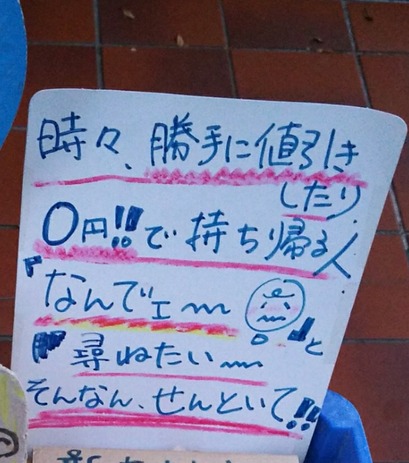 時々、勝手に値引き
したり
0円!!で持ち帰る人
『なんでェ〜』と
尋ねたい〜
そんなん、せんといて!!